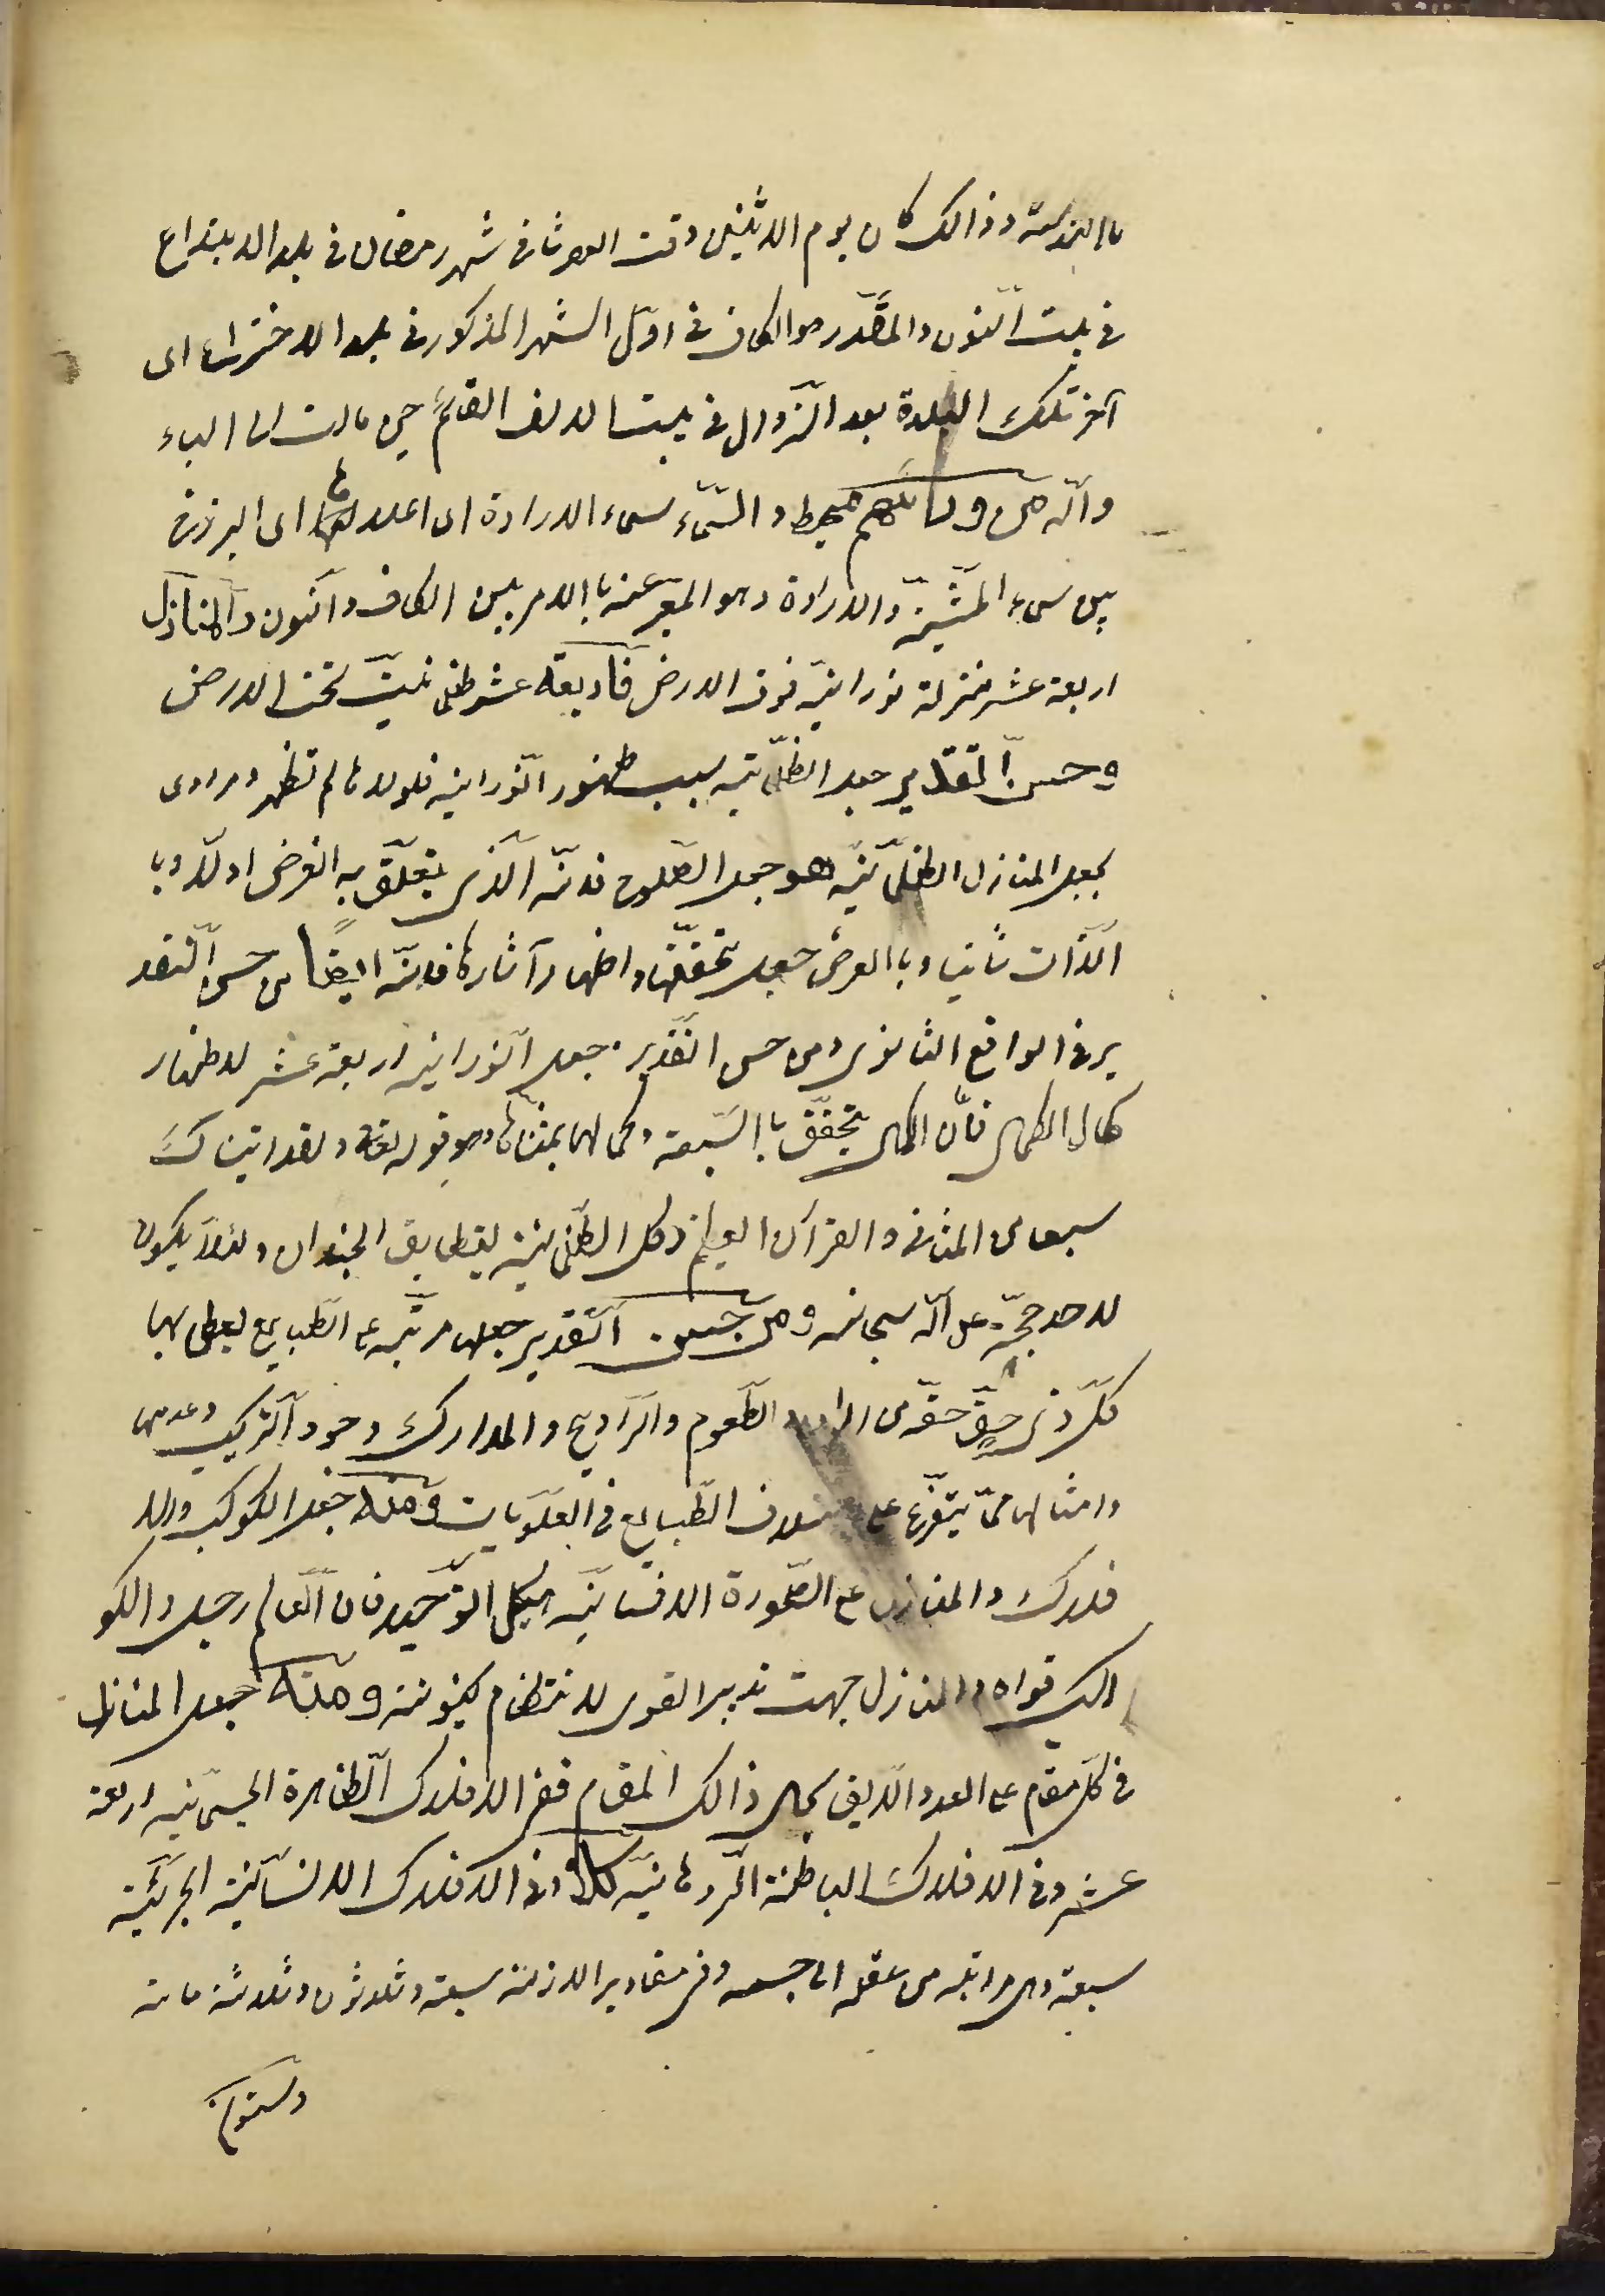 وذالك كان يوم الاثنين وقت العصر ثانى شهر رمضان فى بلد الابتداع
فى بيت النون والمقدر هو الكاف فى اول الشهر المذكور فى بلد الاختراع اى
آخر تلك البلدة بعد الزوال فى بيت الالف القائم حين مالت الى الباء
والله من ورائهم محيط والسماء سماء الارادة اى اعلاها اى البرزخ
بين سماء المشية والارادة وهو المعبر عنه باالامر بين الكاف والنون والمنازل
اربعة عشر منزلة نورانية فوق الارض واربعة عشر ظلمانية تحت الارض
وحسن التقدير جعل الظلمانية سبب ظهور النورانية فلولاها لم تظهر ومرادى
بجعل المنازل الظلمانية هو جعل الصلوح فانه الذى يتعلق به الغرض اولا وبا
الذات ثانيا وبا العرض جعل تحققها واظهار آثارها فانه ايضا من حسن التقد
ير فى الواقع الثانوى ومن حسن التقدير جعل النورانية اربعة عشر لاظهار
كمال الكمال فان الكمال يتحقق با السبعة وكمالها بمثناها وهو قوله تعالى ولقد اتيناك
سبعا من المثانى والقرآن العظيم وكل الظلمانية ليطابق الجندان ولئلا يكون
لاحد حجة على الله سبحانه ومن حسن التقدير جعلها مرتبة على الطبايع ليعطى بها
كل ذى حق حقه من الطعوم والروايح والمدارك وجود التركيب وعدمها
وامثالها مما يتفرع على اختلاف الطبايع فى العلويات ومنه جعل الكوكب والا
فلاك والمنازل على الصورة الانسانية هيكل التوحيد فان العالم رجل والكو
اكب قواه والمنازل جهت تدبير القوى لانتظام كينونته ومنه جعل المنازل
فى كل مقام على العدد اللايق بحال ذالك المقام ففى الافلاك الظاهرة الجسمانية اربعة
عشر وفى الافلاك الباطنة الروحانية كلا وفى الافلاك الانسانية الجزئية
سبعة وهى مراتبه من عقله الى جسمه وفى مقادير الازمنة سبعة وثلاثون وثلاثمائة
وستون